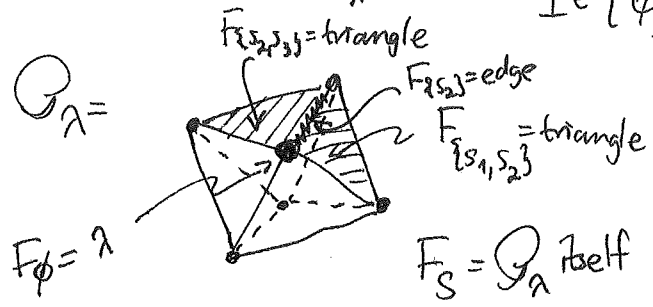 I ∈ {ϕ,
F_{S₂,S₃} = triangle
F_{S₂} = edge
P_λ =
F_{S₁,S₂} = triangle
F_ϕ = λ
F_S = P_λ itself